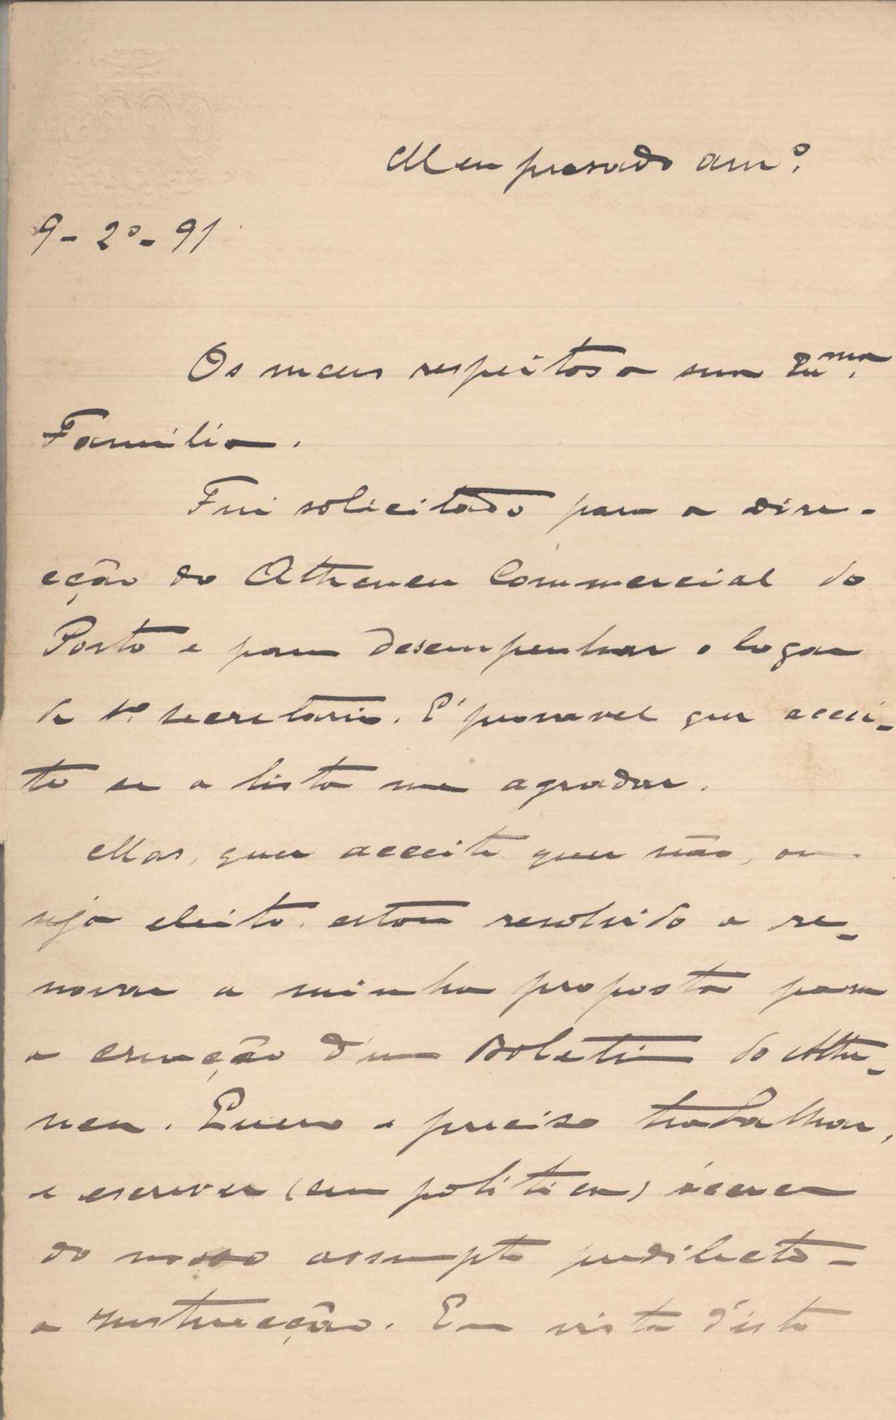 Meu presado am.º
9-2º-91
Os meus respeitos a sua Exma.
Familia.
Fui solicitado para a dire-
cção do Atheneu Commercial do
Porto e para desempenhar o logar
de 1º secretario. É provavel que accei-
te se a lista me agradar.
Mas, quer acceite quer não, ou
seja eleito, estou resolvido a re-
novar a minha proposta para
a creação d'um Boletim do Athe-
neu. Quero e preciso trabalhar,
e escrever (sem politica) ácerca
do nosso assumpto predilecto -
a Instrucção. Em vista d'isto